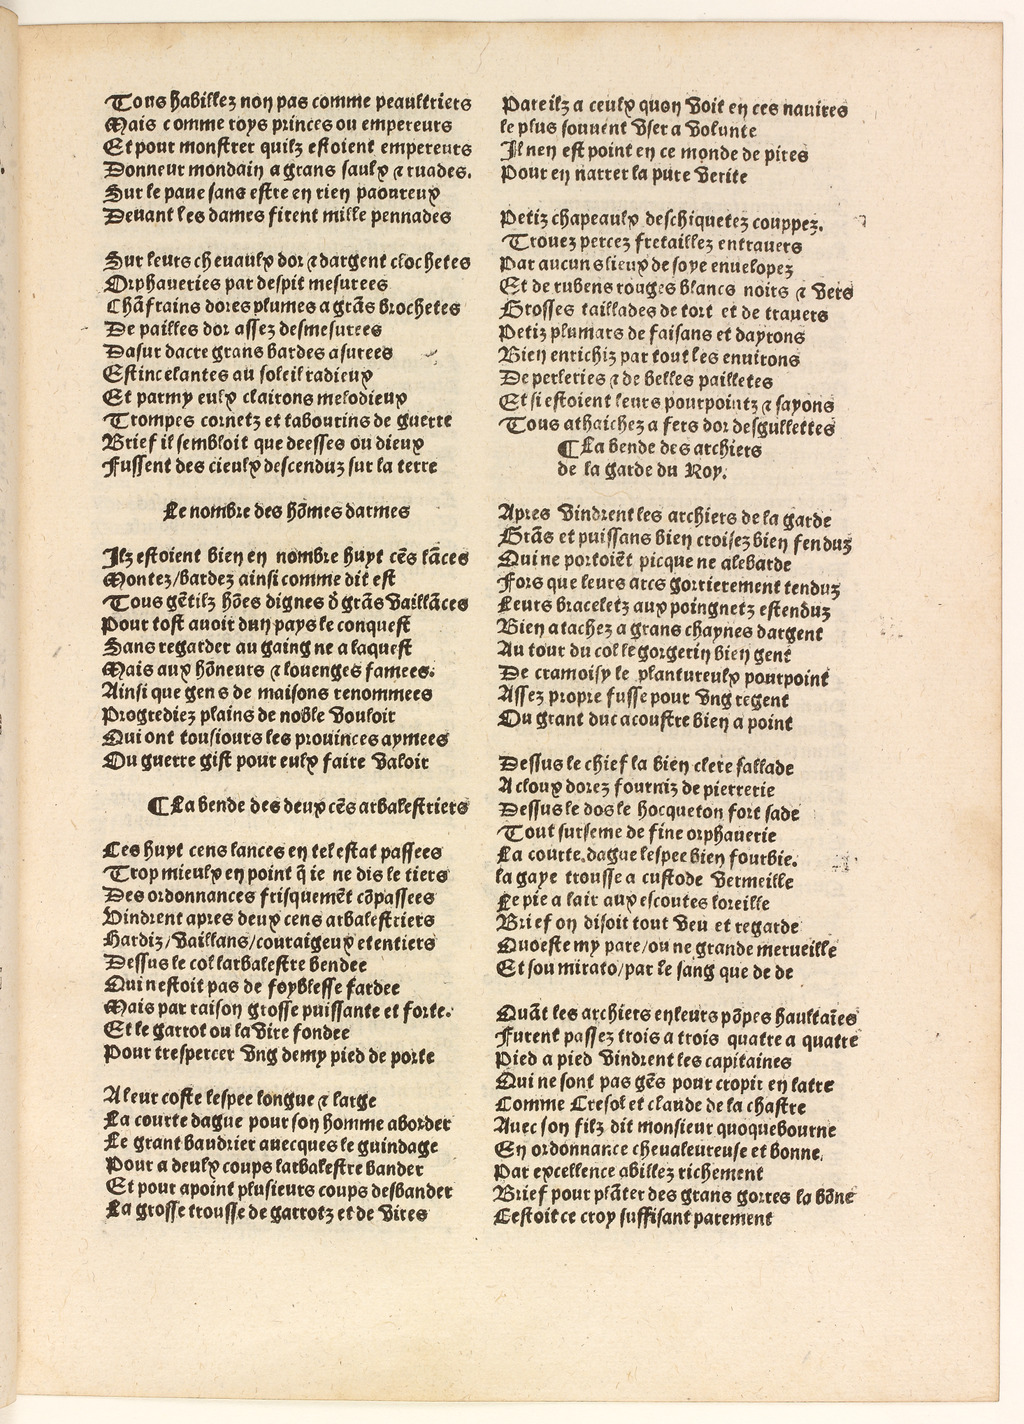 Tous habillez non pas comme peaultriers
Mais comme roys princes ou empereurs
Et pour monstrer quilz estoient empereurs
Donneur mondain a grans saulx ⁊ ruades.
Sur le paue sans estre en rien paoureux
Deuant les dames firent mille pennades

Sur leurs cheuaulx dor ⁊ dargent clochetes
Orphaueries par despit mesurees
Chāfrains dores plumes a grās brochetes
De pailles dor assez desmesurees
Dasur dacre grans bardes asurees
Estincelantes au soleil radieux
Et parmy eulx clairons melodieux
Trompes cornetz et tabourins de guerre
Brief il sembloit que deesses ou dieux
Fussent des cieulx descenduz sur la terre

Le nombre des hōmes darmes

Ilz estoient bien en nombre huyt cēs lāces
Montez/bardez ainsi comme dit est
Tous gētilz hōes dignes ō grās vaillāces
Pour tost auoir dun pays le conquest
Sans regarder au gaing ne a laquest
Mais aux hōneurs ⁊ louenges famees.
Ainsi que gens de maisons renommees
Progrediez plains de noble vouloir
Qui ont tousiours les prouinces aymees
Ou guerre gist pour eulx faire valoir

¶La bende des deux cēs arbalestriers

Les huyt cens lances en tel estat passees
Trop mieulx en point q̄ ie ne dis le tiers
Des ordonnances frisquemēt cōpassees
Vindrent apres deux cens arbalestriers
Hardiz/vaillans/couraigeux et entiers
Dessus le col larbalestre bendee
Qui nestoit pas de foyblesse fardee
Mais par raison grosse puissante et forte.
Et le garrot ou la vire fondee
Pour trespercer vng demy pied de porte

A leur coste lespee longue ⁊ large
La courte dague pour son homme aborder
Le grant baudrier auecques le guindage
Pour a deulx coups larbalestre bander
Et pour apoint plusieurs coups desbander
La grosse trousse de garrotz et de vires

Pareilz a ceulx quon voit en ces nauires
le plus souuent vser a volunte
Il nen est point en ce monde de pires
Pour en narrer la pure verite

Petiz chapeaulx deschiquetez couppez.
Trouez percez fretaillez entrauers
Par aucuns lieux de soye enuelopez
Et de rubens rouges blancs noirs ⁊ vers
Grosses taillades de tort et de trauers
Petiz plumars de faisans et dayrons
Bien enrichiz par tout les enuirons
De perleries ⁊ de belles pailletes
Et si estoient leurs pourpointz ⁊ sayons
Tous athaichez a fers dor desgullettes
¶La bende des archiers
de la garde du Roy.

Apres vindrent les archiers de la garde
Grās et puissans bien croisez bien fenduz
Qui ne portoiēt picque ne alebarde
Fors que leurs arcs gorrierement tenduz
Leurs braceletz aux poingnetz estenduz
Bien atachez a grans chaynes dargent
Au tour du col le gorgerin bien gent
De cramoisy le plantureulx pourpoint
Assez propre fusse pour vng regent
Ou grant duc acoustre bien a point

Dessus le chief la bien clere sallade
A cloux dorez fourniz de pierrerie
Dessus le dos le hocqueton fort sade
Tout surseme de fine orphauerie
La courte.dague lespee bien fourbie.
la gaye trousse a custode vermeille
Le pie a lair aux escoutes loreille
Brief on disoit tout veu et regarde
Quoeste my pare/ou ne grande merueille
Et sou miraro/par le sang que de de

Quāt les archiers en leurs pōpes haultaīes
Furent passez trois a trois quatre a quatre
Pied a pied vindrent les capitaines
Qui ne sont pas gēs pour cropir en latre
Comme Cresol et claude de la chastre
Auec son filz dit monsieur quoquebourne
En ordonnance cheualeureuse et bonne.
Par excellence abillez richement
Brief pour plāter des grans gorres la bōne
Cestoit ce croy suffisant parement